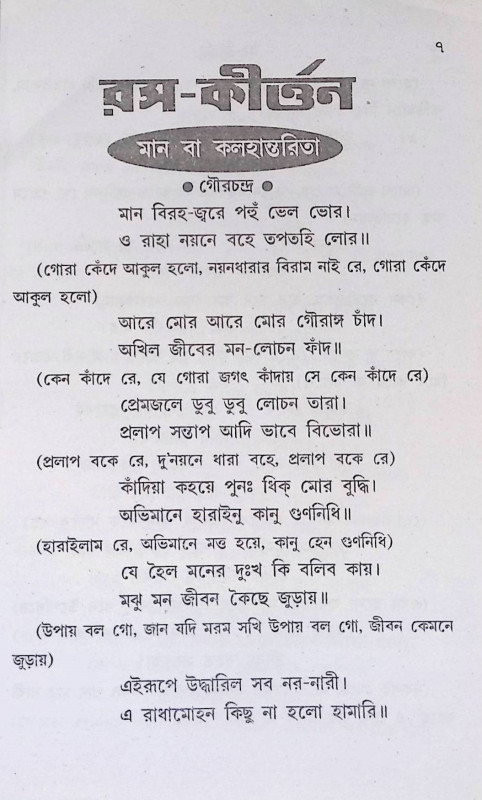 ৭
রস-কীর্ত্তন
মান বা কলহান্তরিতা
● গৌরচন্দ্র ●
মান বিরহ-জ্বরে পহুঁ ভেল ভোর।
ও রাহা নয়নে বহে তপতহি লোর॥
(গোরা কেঁদে আকুল হলো, নয়নধারার বিরাম নাই রে, গোরা কেঁদে
আকুল হলো)
আরে মোর আরে মোর গৌরাঙ্গ চাঁদ।
অখিল জীবের মন-লোচন ফাঁদ॥
(কেন কাঁদে রে, যে গোরা জগৎ কাঁদায় সে কেন কাঁদে রে)
প্রেমজলে ডুবু ডুবু লোচন তারা।
প্রলাপ সন্তাপ আদি ভাবে বিভোরা॥
(প্রলাপ বকে রে, দু'নয়নে ধারা বহে, প্রলাপ বকে রে)
কাঁদিয়া কহয়ে পুনঃ ধিক্ মোর বুদ্ধি।
অভিমানে হারাইনু কানু গুণনিধি॥
(হারাইলাম রে, অভিমানে মত্ত হয়ে, কানু হেন গুণনিধি)
যে হৈল মনের দুঃখ কি বলিব কায়।
মঝু মন জীবন কৈছে জুড়ায়॥
(উপায় বল গো, জান যদি মরম সখি উপায় বল গো, জীবন কেমনে
জুড়ায়)
এইরূপে উদ্ধারিল সব নর-নারী।
এ রাধামোহন কিছু না হলো হামারি॥